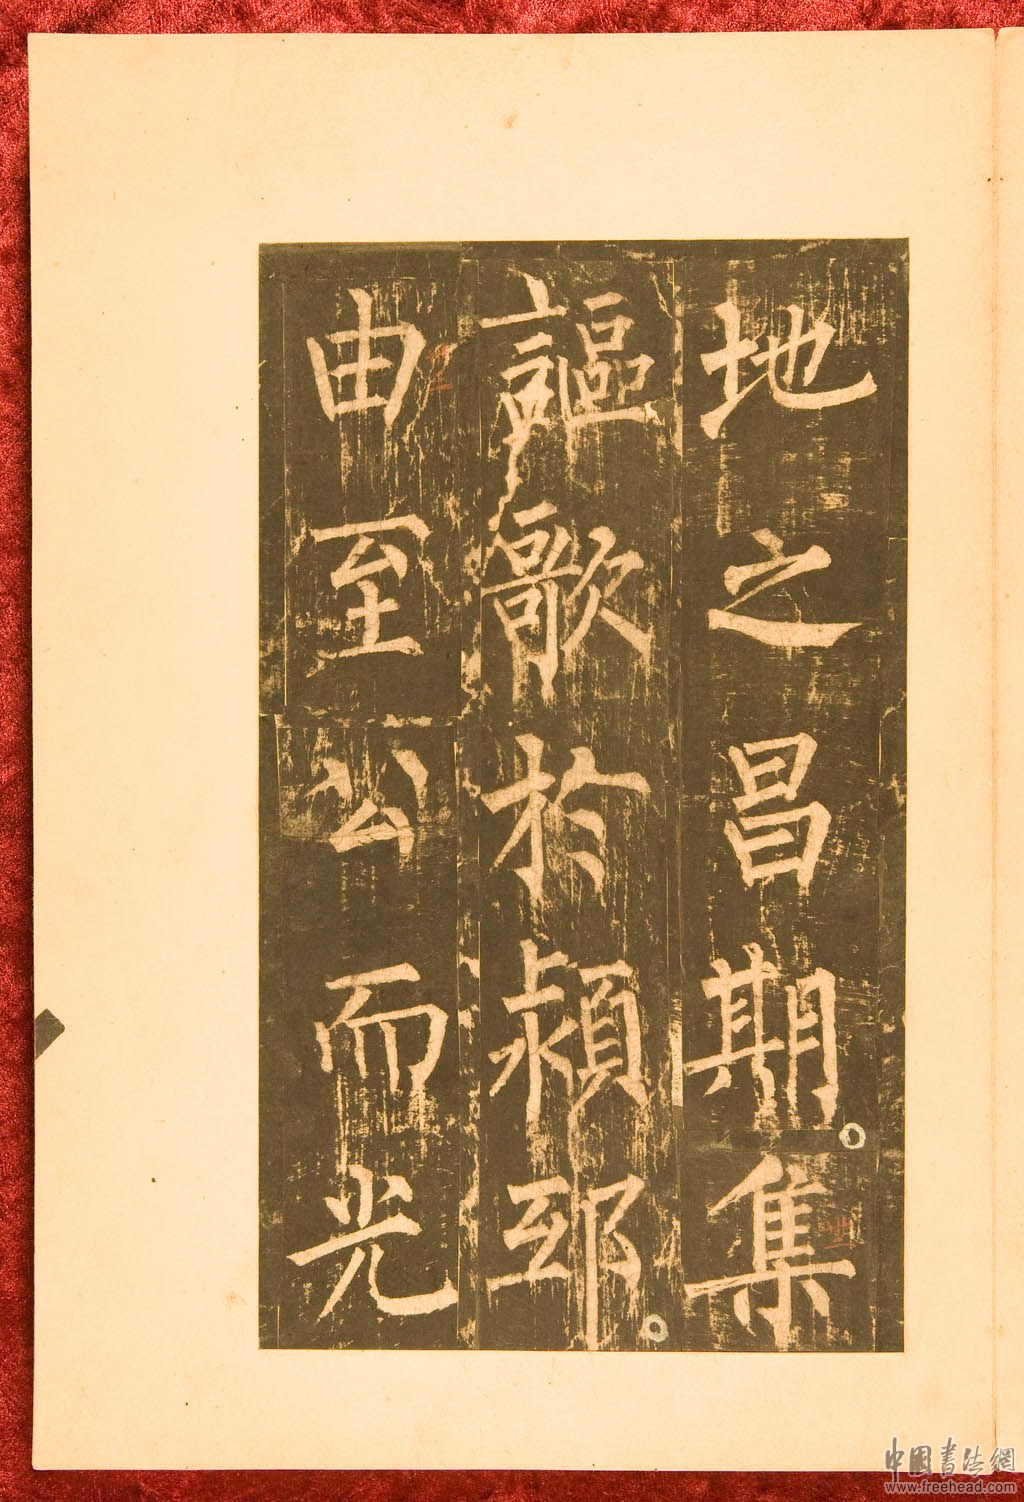 地之昌期集
謳歌於潁邸
由至公而光
中國書法網
www.freehead.com